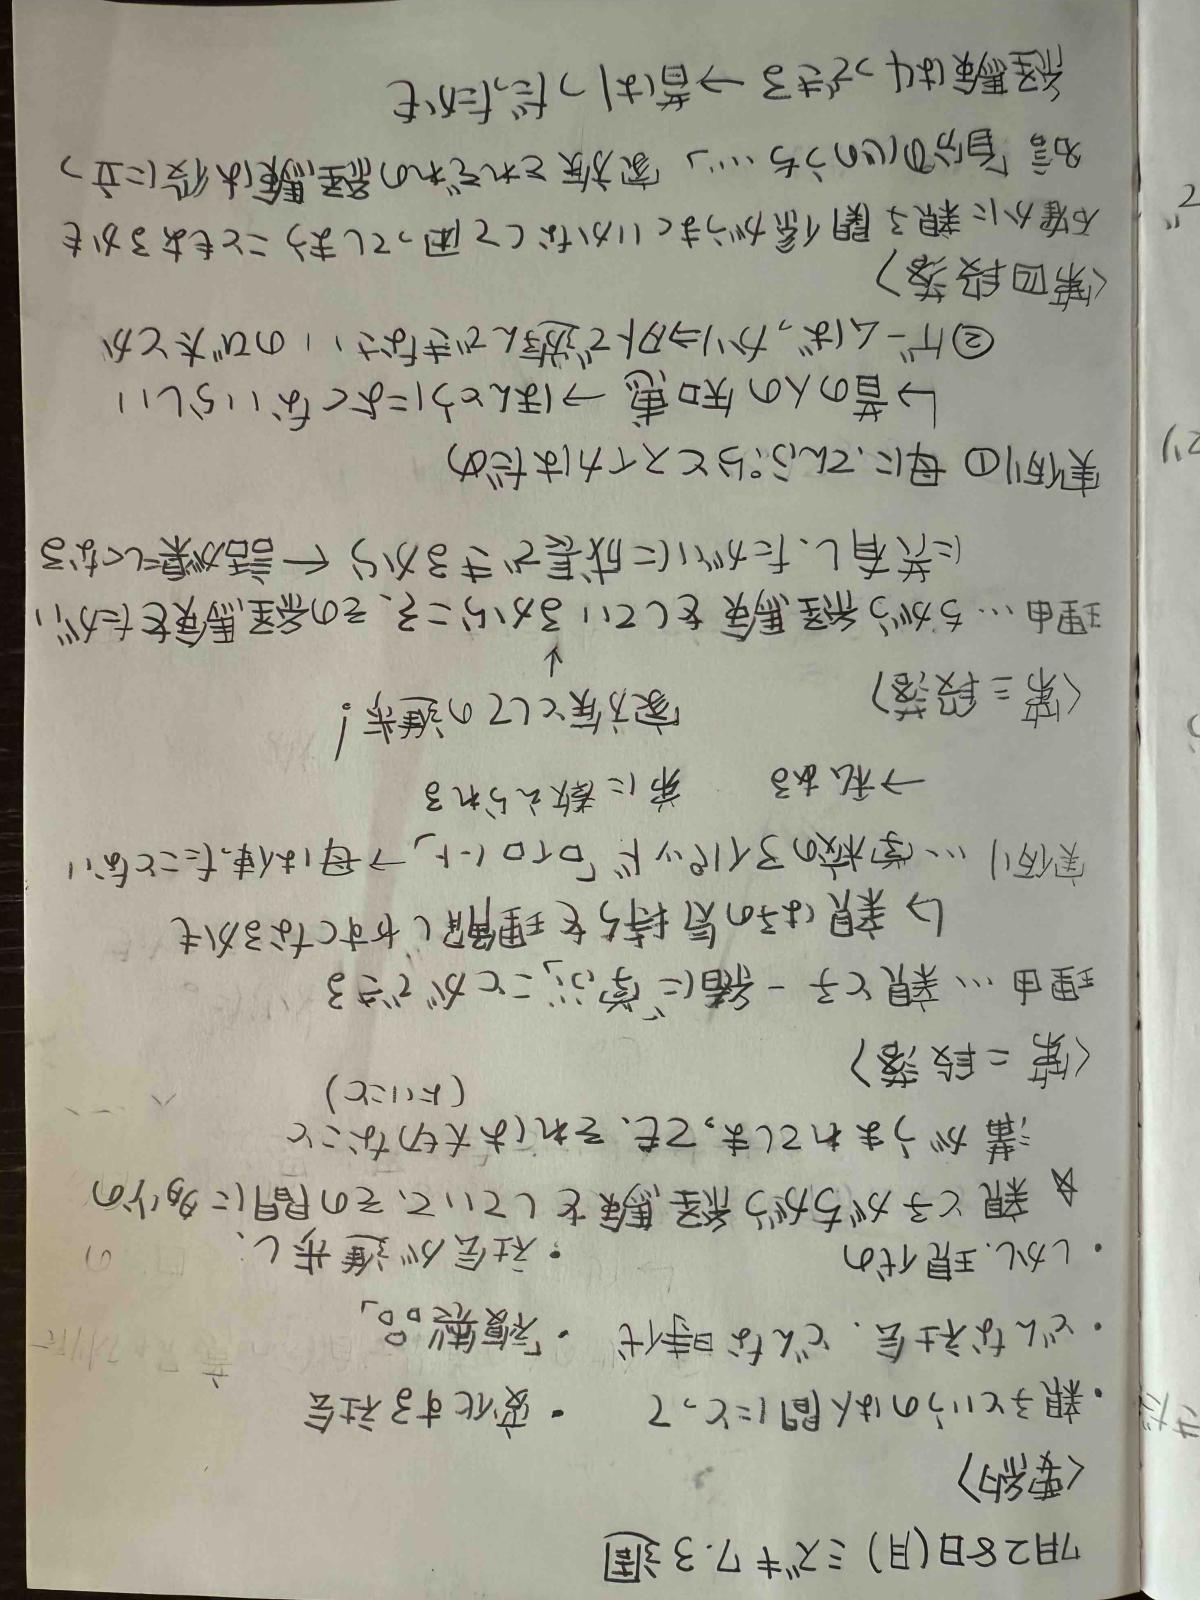 7月28日(月) ミズキ7.3週
〈要約〉
・親子というのは人間にとって ・変化する社会
・どんな社会、どんな時代 ・「複製〇〇」
・しかし、現代の ・社会が進歩し、
☆親と子がちがう経験をしていて、その間に多少の
溝がうまれてしまっても、それは大切なこと
(よいこと)
〈第二段落〉
理由…親と子一緒に「学ぶ」ことができる
↳親は子の気持ちを理解しやすくなるかも
実例…学校のアイパッド「ロイロノート」→母は使ったことない
→私ある 弟に教えられる
〈第三段落〉 家族としての進歩!
↓
理由…ちがう経験をしているからこそ、その経験をたがい
に共有し、たがいに成長できるから ← 話が楽しくなる
実例① 母に、てんぷらとスイカはだめ
↳昔の人の知恵→ほんとうによくないらしい
②ゲームばっかり⇒外で遊んできなさい のび太とか
〈第四段落〉
確かに親子関係がうまくいかなくて困ってしまうこともあるかも
名言「自分の心のうち…」 家族それぞれの経験は役に立つ
経験は4つできる→昔は1つだったかも